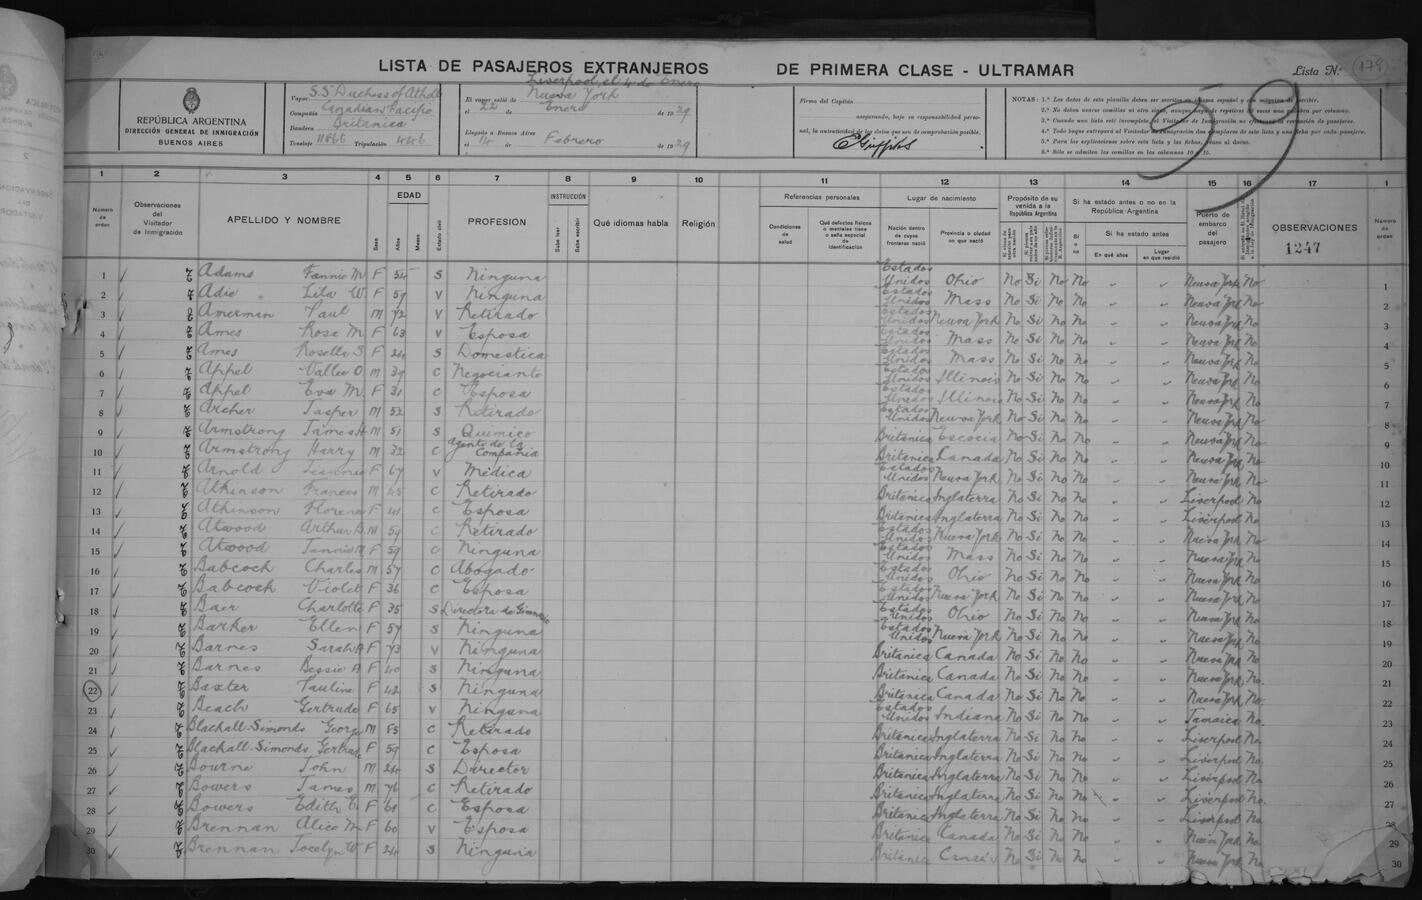 LISTA DE PASAJEROS EXTRANJEROS DE PRIMERA CLASE - ULTRAMAR
Lista N.º (179)
59
REPÚBLICA ARGENTINA
DIRECCIÓN GENERAL DE INMIGRACIÓN
BUENOS AIRES
Vapor S.S. Duchess of Atholl
Compañía Canadian Pacific
Bandera Britanica
Tonelaje Tripulación 446
Liverpool, el 4 de Enero
El vapor salió de Nueva York
el 22 de Enero de 1929
Llegado a Buenos Aires
el 14 de Febrero de 1929
Firma del Capitán
asegurando, bajo su responsabilidad personal, la autenticidad de los datos que son de comprobación posible.
NOTAS: 1.ª Los datos de esta planilla deben ser escritos en idioma español y con máquina de escribir.
1 2 3 4 5 6 7 8 9 10 11 12 13 14 15 16 17 1
Número de orden
Observaciones del Visitador de Inmigración
APELLIDO Y NOMBRE
Sexo
EDAD
Años
Meses
Estado civil
PROFESIÓN
INSTRUCCIÓN
Sabe leer
Sabe escribir
Qué idiomas habla
Religión
Referencias personales
Condiciones de salud
Qué defectos físicos o mentales tiene o seña especial de identificación
Lugar de nacimiento
Nación dentro de cuyas fronteras nació
Provincia o ciudad en que nació
Propósito de su venida a la República Argentina
Si ha estado antes o no en la República Argentina
Si o no
Si ha estado antes
En qué años
Lugar en que residió
Puerto de embarco del pasajero
OBSERVACIONES
1247
Número de orden
1 Adams Fannie M. F 54 S Ninguna Estados Unidos Ohio No Si No No " " Nueva York No 1
2 Adie Lila W. F 59 V Ninguna Estados Unidos Mass No Si No No " " Nueva York No 2
3 Amerman Paul M 72 V Retirado Estados Unidos Nueva York No Si No No " " Nueva York No 3
4 Ames Rosa M. F 63 V Esposa Estados Unidos Mass No Si No No " " Nueva York No 4
5 Ames Rosella S F 24 S Domestica Estados Unidos Mass No Si No No " " Nueva York No 5
6 Appel Vallee O M 39 C Negociante Estados Unidos Illinois No Si No No " " Nueva York No 6
7 Appel Eva M. F 31 C Esposa Estados Unidos Illinois No Si No No " " Nueva York No 7
8 Archer Jasper M 52 S Retirado Estados Unidos Nueva York No Si No No " " Nueva York No 8
9 Armstrong James H. M 51 S Quimico Britanica Escocia No Si No No " " Nueva York No 9
10 Armstrong Harry M 32 C Agente de la Compania Britanica Canada No Si No No " " Nueva York No 10
11 Arnold Jeannie F 67 V Medica Estados Unidos Nueva York No Si No No " " Nueva York No 11
12 Atkinson Frances M 45 C Retirado Britanica Inglaterra No Si No No " " Liverpool No 12
13 Athinson Florence F 41 C Esposa Britanica Inglaterra No Si No No " " Liverpool No 13
14 Atwood Arthur B. M 59 C Retirado Estados Unidos Nueva York No Si No No " " Nueva York No 14
15 Atwood Fannie M F 59 C Ninguna Estados Unidos Mass No Si No No " " Nueva York No 15
16 Babcock Charles M 57 C Abogado Estados Unidos Ohio No Si No No " " Nueva York No 16
17 Babcock Violet F 36 C Esposa Estados Unidos Nueva York No Si No No " " Nueva York No 17
18 Baer Charlotte F 35 S Directora de Gimnasio Estados Unidos Ohio No Si No No " " Nueva York No 18
19 Barker Ellen F 57 S Ninguna Estados Unidos Nueva York No Si No No " " Nueva York No 19
20 Barnes Sarah A F 73 V Ninguna Britanica Canada No Si No No " " Nueva York No 20
21 Barnes Bessie A F 40 S Ninguna Britanica Canada No Si No No " " Nueva York No 21
22 Baxter Pauline F 42 S Ninguna Britanica Canada No Si No No " " Nueva York No 22
23 Beach Gertrude F 65 V Ninguna Estados Unidos Indiana No Si No No " " Jamaica No 23
24 Blackall-Simonds George M 65 C Retirado Britanica Inglaterra No Si No No " " Liverpool No 24
25 Blackall-Simonds Gertrude F 59 C Esposa Britanica Inglaterra No Si No No " " Liverpool No 25
26 Bourne John M 24 S Director Britanica Inglaterra No Si No No " " Liverpool No 26
27 Bowers James M 76 C Retirado Britanica Inglaterra No Si No No " " Liverpool No 27
28 Bowers Edith C. F 61 C Esposa Britanica Inglaterra No Si No No " " Liverpool No 28
29 Brennan Alice M. F 60 V Esposa Britanica Canada No Si No No " " Nueva York No 29
30 Brennan Jocelyn W F 24 S Ninguna Britanica Canada No Si No No " " Nueva York No 30